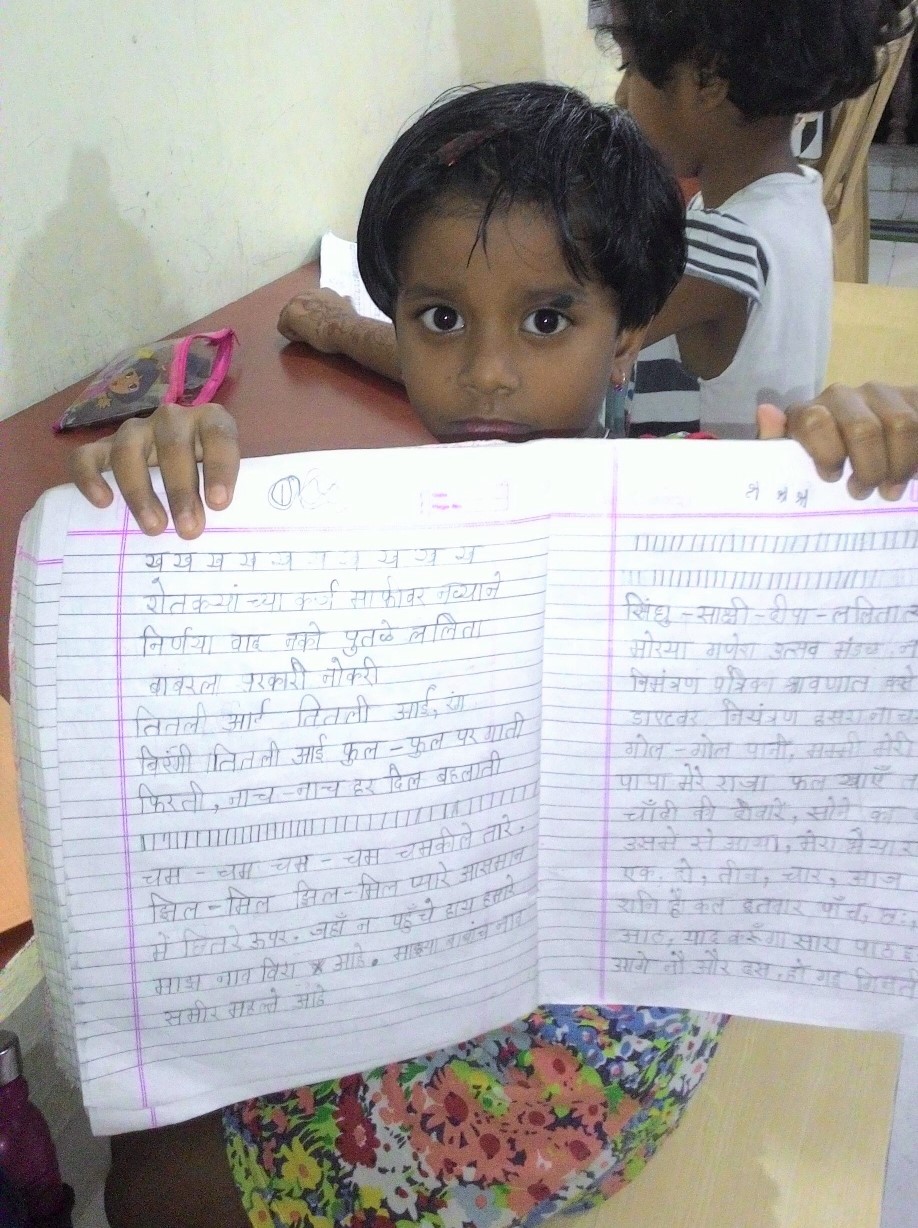 ख ख ख ख ख ख ख ख ख ख
शेतकऱ्यांच्या कर्ज माफीवर नव्याने
निर्णया वाद नको पुतळे ललिता
बाबरला सरकारी नोकरी
तितली आई तितली आई, रंग
बिरंगी तितली आई फुल-फुल पर गाती
फिरती, नाच-नाच हर दिल बहलाती
चम - चम चम - चम चमकीले तारे,
झिल-मिल झिल-मिल प्यारे आसमान
में बितरे ऊपर. जहाँ न पहुँचे हाथ हमारे
माझ नाव विरा आहे. माझ्या बाबांच नाव
समीर आहे
श्र श्र श्र
सिंधु - साक्षी - दीपा - ललिता
मोरया गणेश उत्सव मंडळ
निमंत्रण पत्रिका श्रावणात
नियंत्रण दुसरा
गोल-गोल पानी, मम्मी मेरी
पापा मेरे राजा फल खाएँ
चाँदी की दीवारें, सोने का
उसमे से आया, मेरा भैया
एक, दो, तीन, चार, आज
शनि है कल इतवार पाँच, छः
आठ, याद करूँगा सारा पाठ
आगे नौ और दस, हो गई गिनती